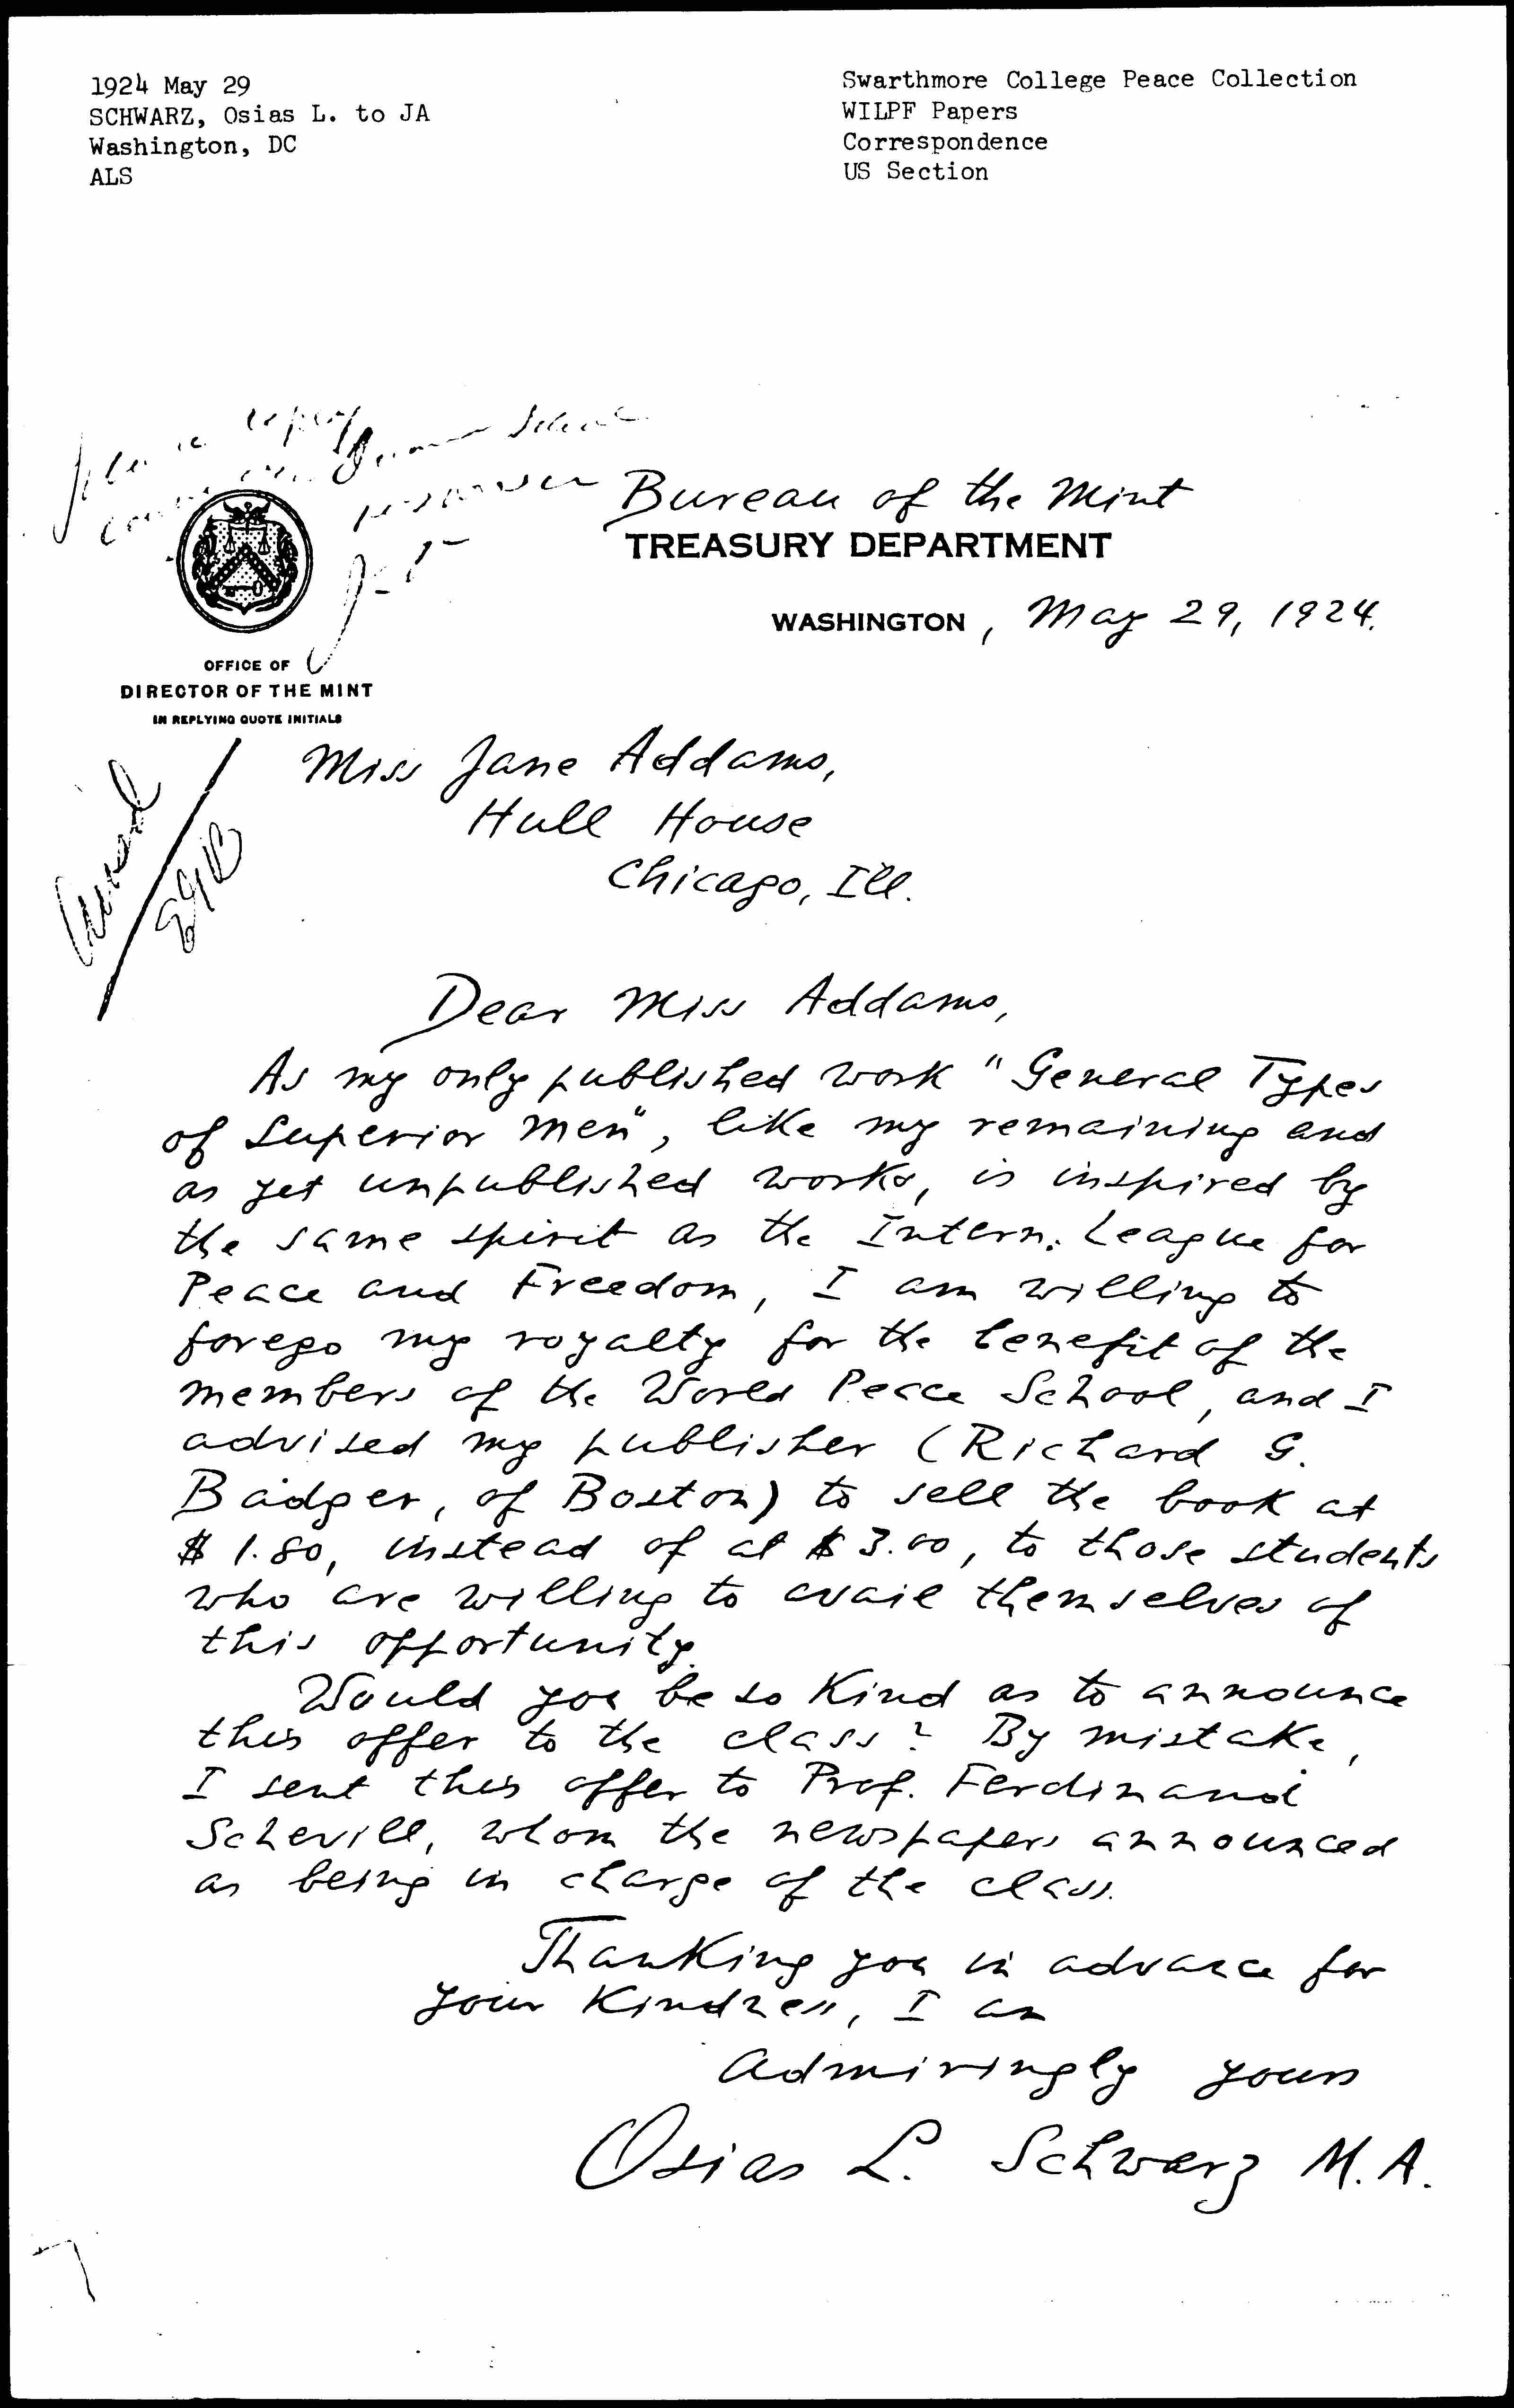 1924 May 29
SCHWARZ, Osias L. to JA
Washington, DC
ALS
Swarthmore College Peace Collection
WILPF Papers
Correspondence
US Section
Bureau of the Mint
TREASURY DEPARTMENT
WASHINGTON, May 29, 1924.
OFFICE OF
DIRECTOR OF THE MINT
IN REPLYING QUOTE INITIALS
Miss Jane Addams,
Hull House
Chicago, Ill.
Dear Miss Addams,
As my only published work "General Types
of Superior Men", like my remaining and
as yet unpublished works, is inspired by
the same spirit as the Intern. League for
Peace and Freedom, I am willing to
forego my royalty for the benefit of the
members of the World Peace School, and I
advised my publisher (Richard G.
Badger, of Boston) to sell the book at
$ 1.80, instead of at $ 3.00, to those students
who are willing to avail themselves of
this opportunity.
Would you be so kind as to announce
this offer to the class? By mistake,
I sent this offer to Prof. Ferdinand
Schevill, whom the newspapers announced
as being in charge of the class.
Thanking you in advance for
your kindness, I am
Admiringly yours
Osias L. Schwarz M.A.